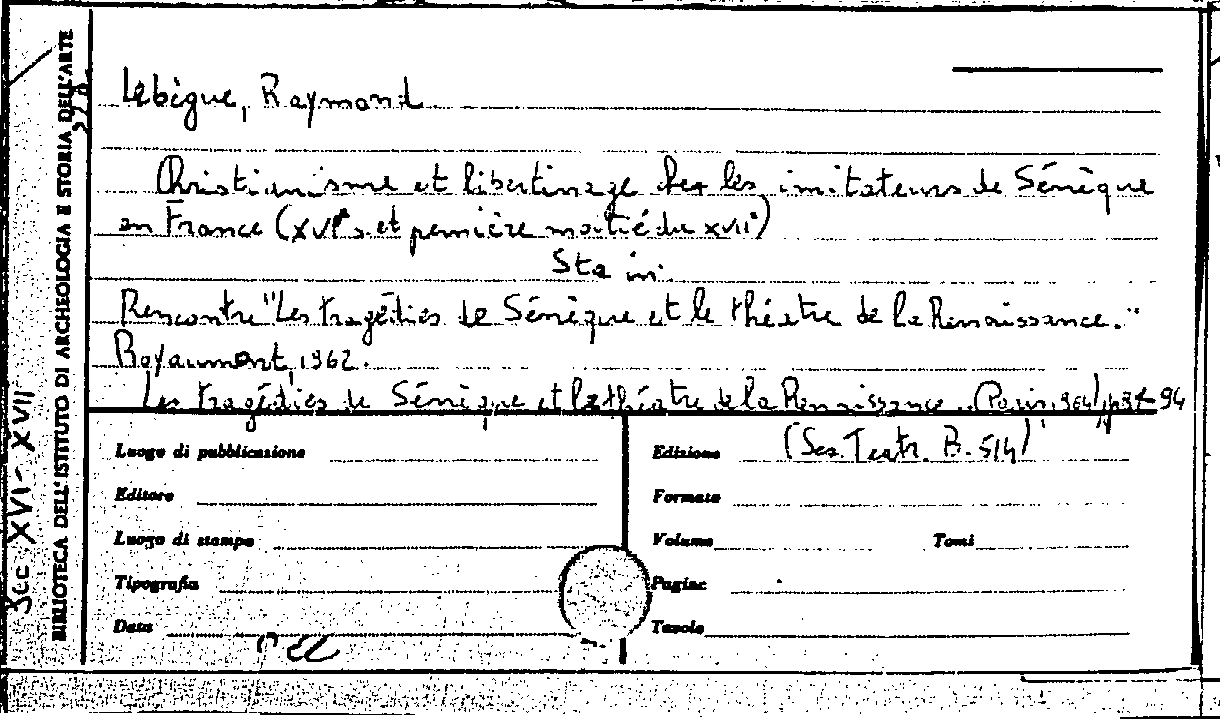 Lebègue, Raymond
Christianisme et libertinage chez les imitateurs de Sénèque
en France (XVIe s. et première moitié du XVIIe)
Sta in:
Rencontre "Les tragédies de Sénèque et le théatre de la Renaissance."
Royaumont, 1962.
Les tragédies de Sénèque et le théatre de la Renaissance .. (Paris, 1964), p. 87-94
(Ses. Teatr. B. 514)
Luogo di pubblicazione
Edizione
Editore
Formato
Luogo di stampa
Volume
Tomi
Tipografia
Pagine
Data
Tavole
BIBLIOTECA DELL'ISTITUTO DI ARCHEOLOGIA E STORIA DELL'ARTE
Sec XVI-XVII